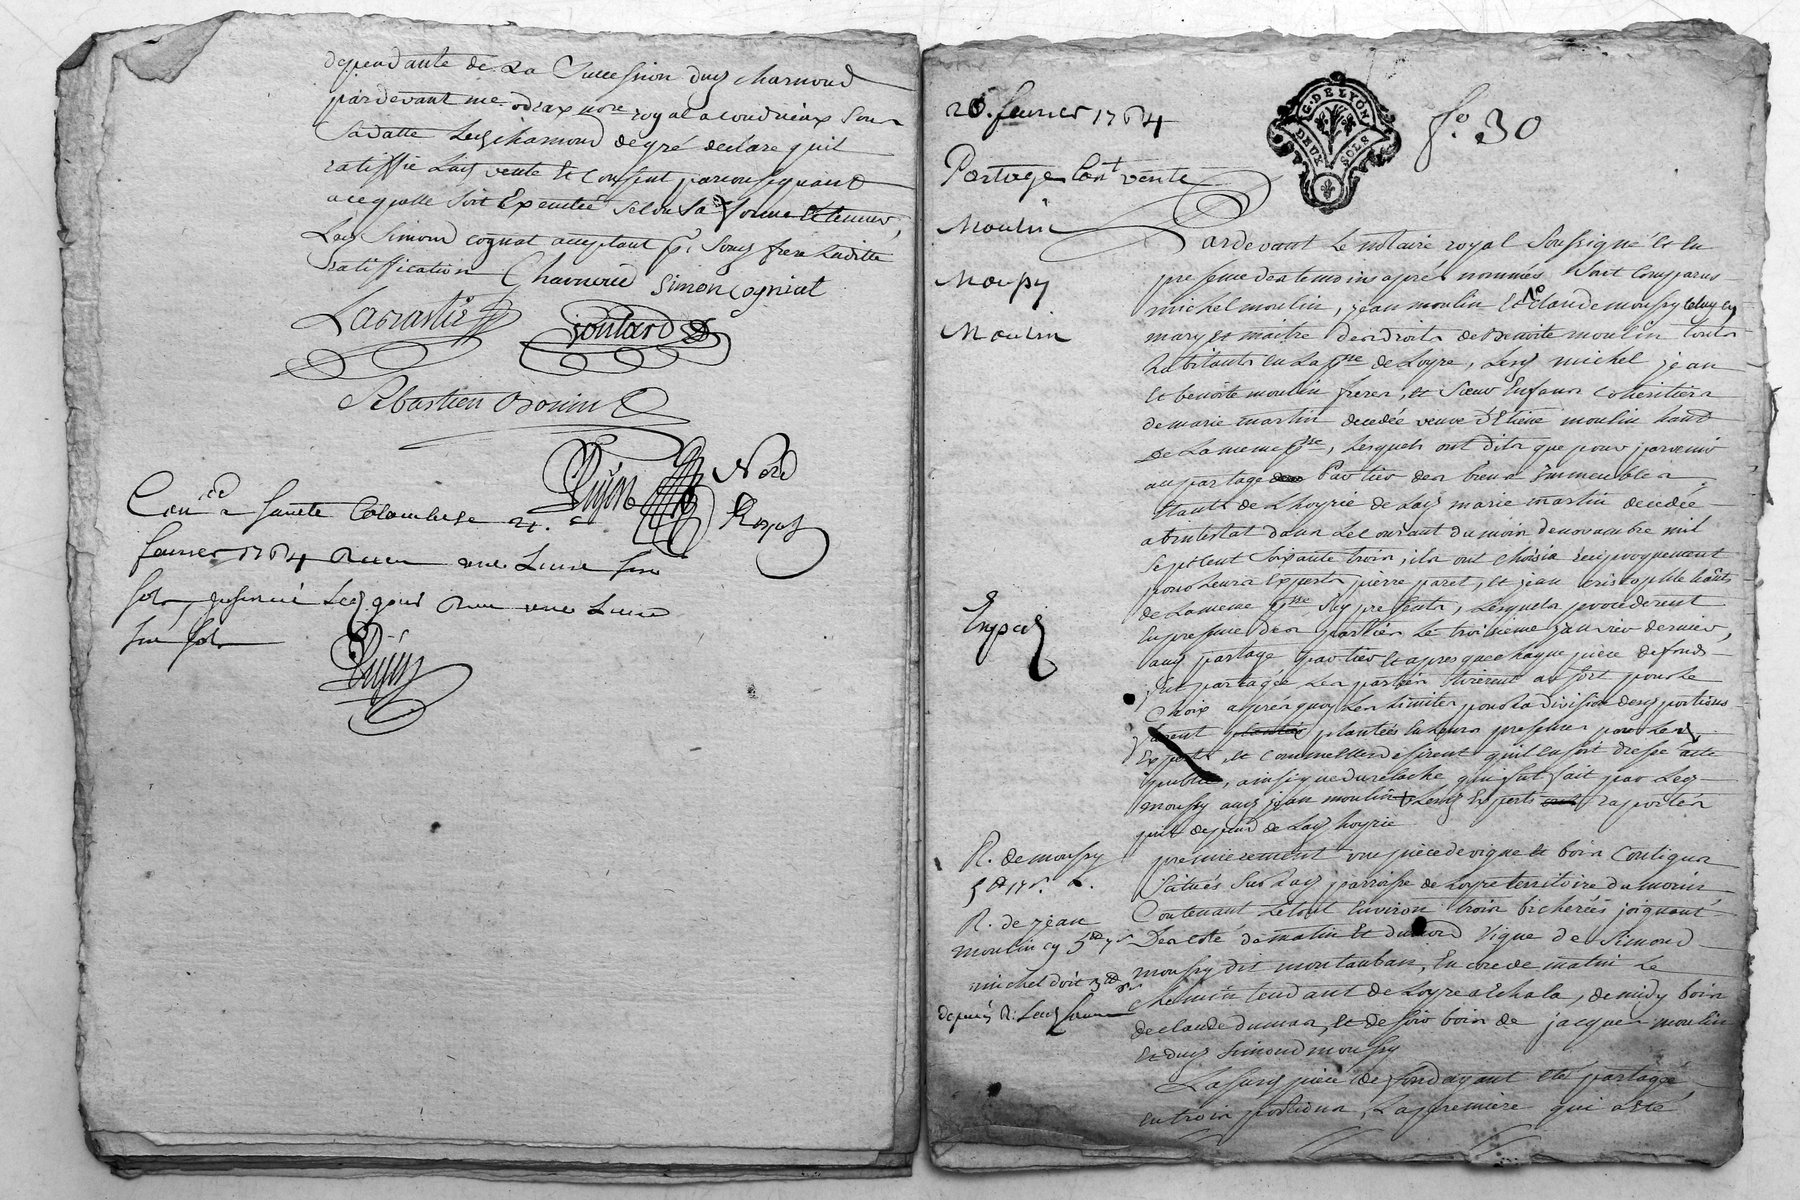 dependante de La Succession dud Charnoud
pardevant me odrax nore royal a condrieux Sous
Sa datte Led Charnoud de gré declare quil
ratiffie Lad vente et consent parconsequant
a cequelle Soit Executée Selon Sa forme et teneur,
Led Simond cognat acceptant pr. Sond frere Laditte
ratiffication Charnoud Simon Cogniat
Labrastie
Jontard
Sebastien Bonin
Dujin Nore
Royal
Conlé a Sainte Colombe le 21. e
fevrier 1764 Receu une Livre six
sols
six sols
Dujin
20. fevrier 1764
G. DE LYON
DEUX SOLS
fo. 30
Partage Cont vente
Moulin
Moussy
Moulin
Pardevant Le notaire royal Soussigné et en
presence des temoins apres nommés Sont Comparus
michel moulin, jean moulin et Sr Claude moussy celuy cy
mary et maitre des droits de Benoite moulin touts
habitants en La psse de Loyre, Lesd michel jean
et benoite moulin freres, et Sœur Enfans cohéritiers
de marie martin decedée veuve d'Etiene moulin hant
de La meme psse, Lesquels ont dits que pour parvenir
au partage Partiel des biens immeubles
étants de L'hoyrie de Lad marie martin decedée
abintestat dans Le Courant du mois de novambre mil
Sept cent Soixante trois, ils ont choisis reciproquement
pour Leurs Experts pierre paret, et jean cristophle hants
de La meme psse Icy presents, Lesquels procederent
En presence des parties Le troisieme janvier dernier,
aud partage partiel et apres que chaque piece de fonds
fut partagée Les parties tirerent au sort pour Le
Choix apres quoy Les Limites pour La division desd portions
furent plantées en Leurs presence par Lesd
Experts, et comme Elles desirent qu'il en soit dressé acte
public, ainsi que du relache qui fut fait par Led
moussy aud jean moulin Lesd Experts raportés
qui depend de Lad hoyrie
Exped
R. de moussy
R. de jean
moulin
michel doit
premierement une piece de vigne et bois Contigus
Situés Sur Lad parroisse de Loyre territoire du moriis
Contenant Le tout Environ trois bicherées joignant
Des coté de matin et du nord vigne de Simond
moussy dit montauban, Encore de matin Le
chemin tendant de Loyre a Echala, de midy bois
de claude dumas, et de soir bois de jacques moulin
Et dud Simond moussy
La Susd piece de fonds ayant eté partagée
en trois portions, La premiere qui a eté